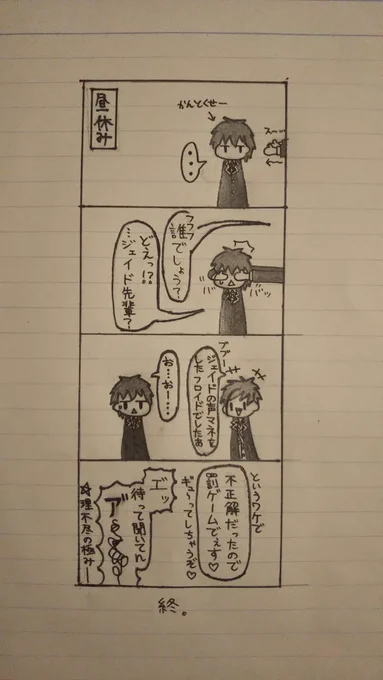 昼休み
かんとくせー
スーッ
・・・
フフフ
誰でしょう？
どえっ!?
…ジェイド先輩？
バッ
ブブー
ジェイドの声マネを
したフロイドでしたぁ
お…おー…
というワケで
不正解だったので
罰ゲームでぇす♡
ギューってしちゃうぞ♡
エッ
待って聞いてn
ア゛
☆理不尽の極みー
終。